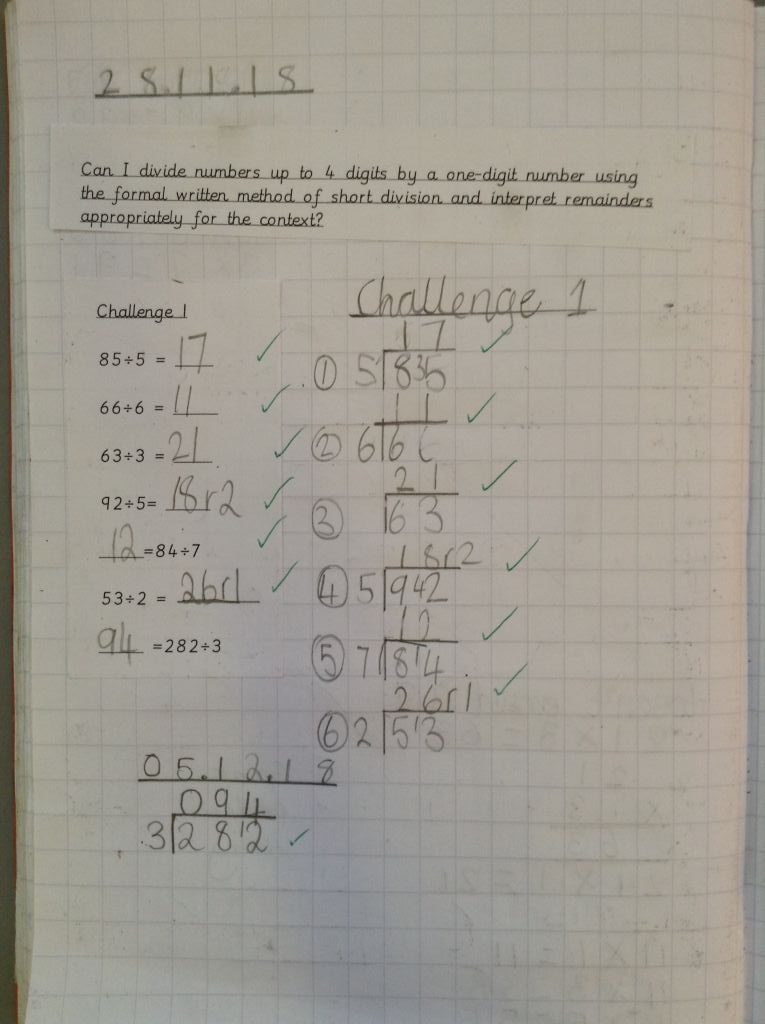 28.11.18
Can I divide numbers up to 4 digits by a one-digit number using
the formal written method of short division and interpret remainders
appropriately for the context?
Challenge 1
85÷5 = 17
66÷6 = 11
63÷3 = 21
92÷5= 18r2
12 =84÷7
53÷2 = 26r1
94 =282÷3
Challenge 1
17
① 5 8 35
11
② 6 6 6
21
③ 63
18r2
④ 5 9 42
12
⑤ 7 8 14
26r1
⑥ 2 5 13
05.12.18
094
3 28 12